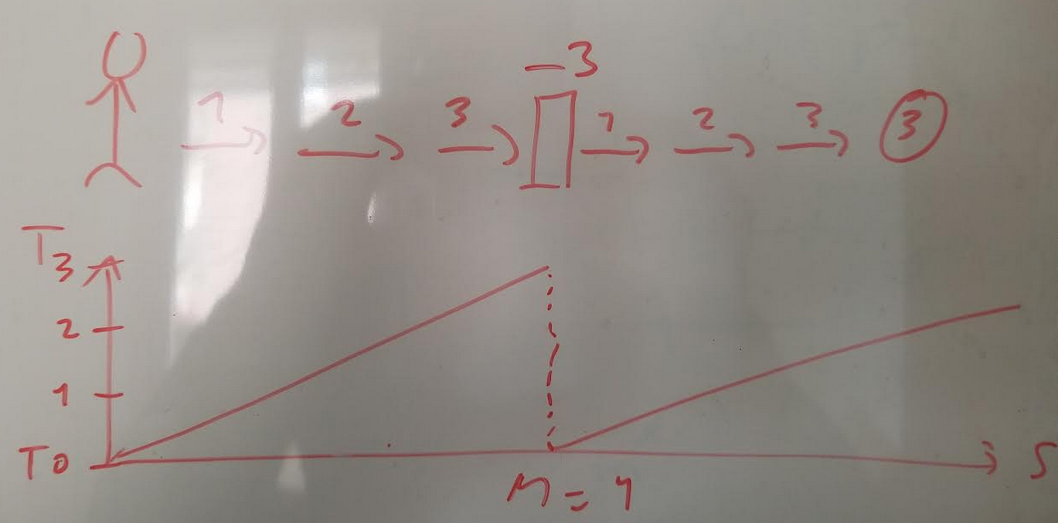 -3
1 2 3 1 2 3 3
T
3
2
1
T0 S
M = 4